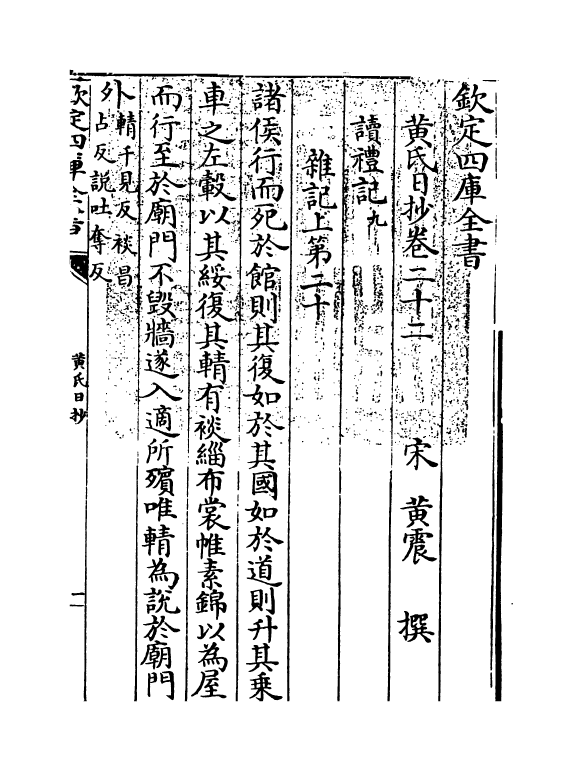 欽定四庫全書
黃氏日抄卷二十二
宋 黃震 撰
讀禮記九
雜記上第二十
諸侯行而死於館則其復如於其國如於道則升其乗
車之左轂以其綏復其輤有裧緇布裳帷素錦以為屋
而行至於廟門不毀牆遂入適所殯唯輤為說於廟門
外輤千見反裧昌
占反說吐奪反
欽定四庫全書
黃氏日抄
一